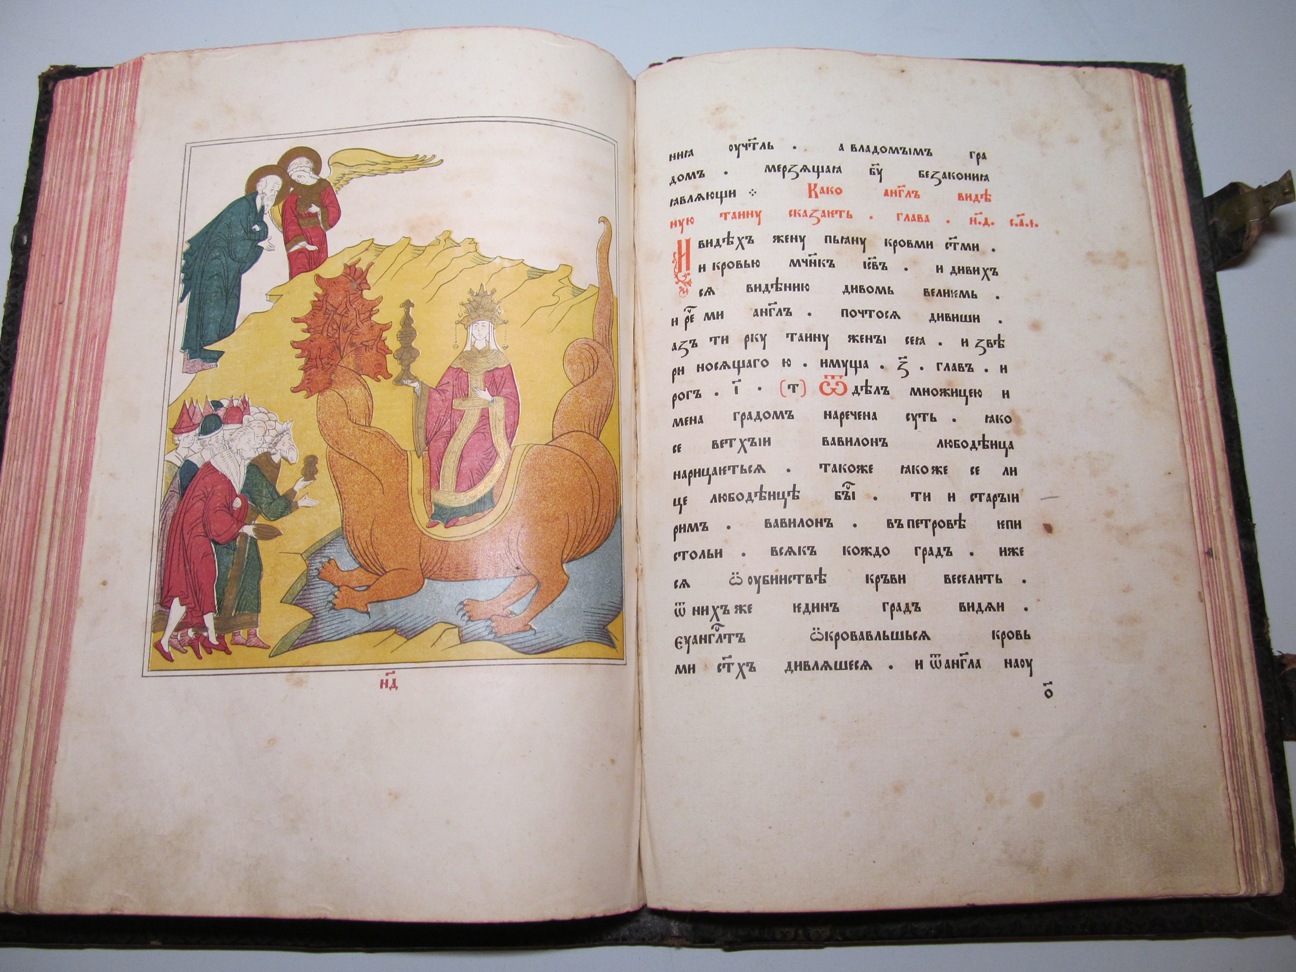 н҃д
нїꙗ ѹчт҃ль . а владомымъ гра
домъ . мерзѧщаꙗ бг҃ꙋ беззакониꙗ
ꙗвлѧющи ⁘ Како анг҃лъ видѣ
ную таину сказаеть . глава . н҃д. с.л.г.
И видѣхъ жену пьꙗну кровми ст҃ми .
и кровью мч҃нкъ іс҃въ . и дивихъ
сѧ видѣнию дивомь великемь .
и рч҃е ми анг҃лъ . почтосѧ дивиши .
азъ ти рку таину жены сеꙗ . и звѣ
ри носѧщаго ю . имуща . з҃ . главъ . и
рогъ . і҃ . (т) Ѿ дѣлъ множицею и
мена градомъ наречена суть . ꙗко
се ветхыи вавилонъ любодѣица
нарицаѥтьсѧ . такоже ꙗкоже се ли
це любодѣицѣ бы҃ . ти и старыи
римъ . вавилонъ . въ петровѣ ѥпи
стольи . всѧкъ кождо градъ . иже
сѧ ѿ оубииствѣ кръви веселить .
ѿ нихъ же ѥдинъ градъ видѧи .
еуанг҃лтъ ѡкровавльшьсѧ кровь
ми ст҃хъ дивлѧшесѧ . и ѿ анг҃ла наоу
о҃